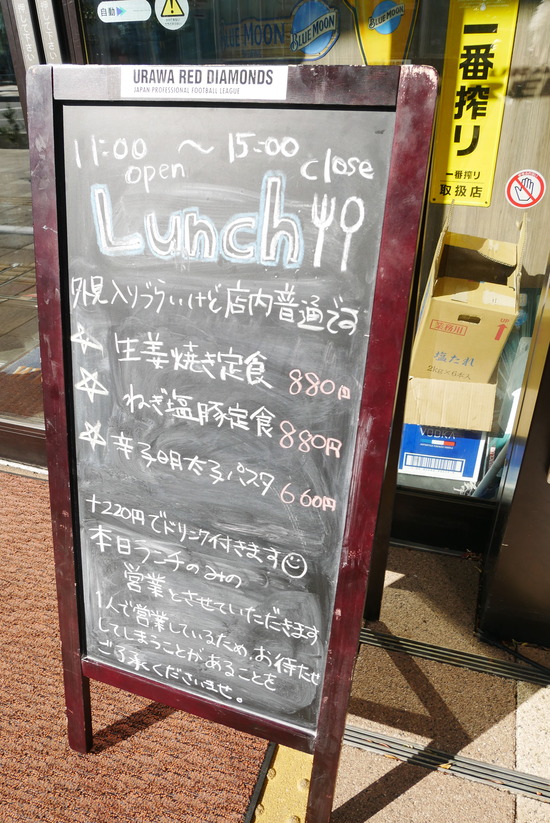 自動
BLUE MOON
BLUE MOON
BLUE MOON
一番搾り
一番搾り
取扱店
URAWA RED DIAMONDS
JAPAN PROFESSIONAL FOOTBALL LEAGUE
11:00 〜 15:00
open close
Lunch
外見入りづらいけど店内普通です
☆ 生姜焼き定食 880円
☆ ねぎ塩豚定食 880円
☆ 辛子明太子パスタ 660円
+220円でドリンク付きます☺
本日ランチのみの
営業とさせていただきます
1人で営業しているため、お待たせ
してしまうことがあることを
ご了承くださいませ。
業務用
塩たれ
2kg×6本入
VODKA